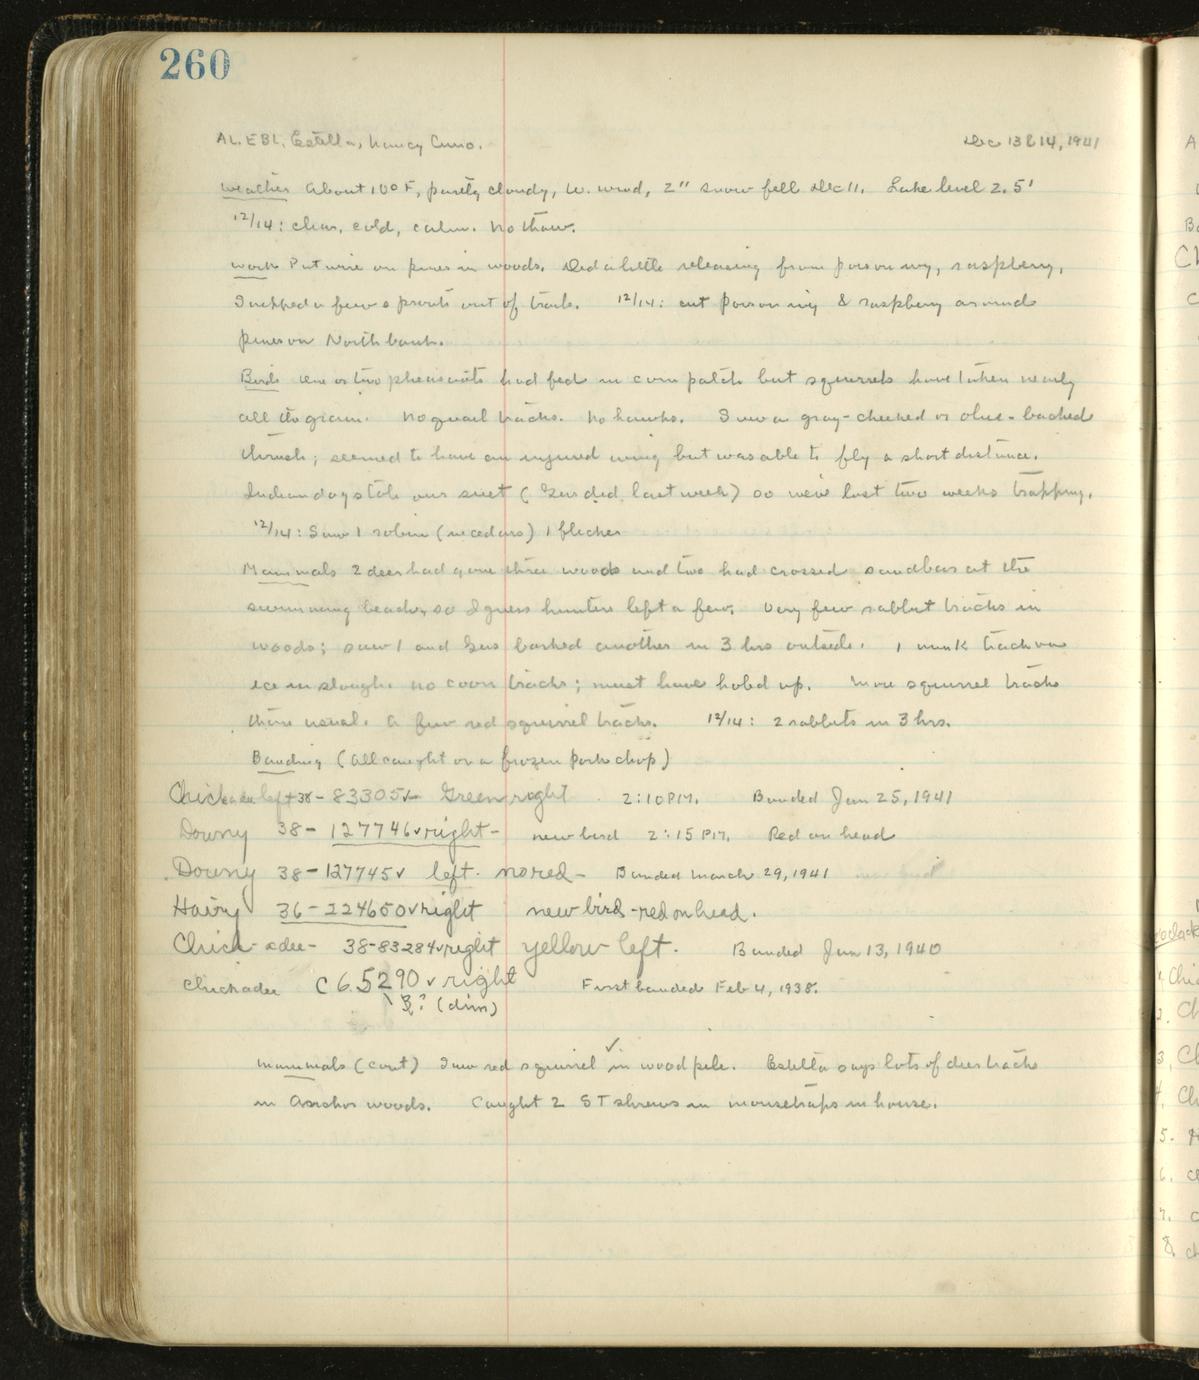 260
AL, EBL, Estella, Nancy, Guus.
Dec 13 & 14, 1941
Weather About 10° F, partly cloudy, W. wind, 2" snow fell Dec 11. Lake level 2.5'
12/14: clear, cold, calm. No thaw.
Work Put wire on pines in woods. Did a little releasing from poison ivy, raspberry,
I nipped a few sprouts out of trail. 12/14: cut poison ivy & raspberry around
pines on North bank.
Birds One or two pheasants had fed in corn patch but squirrels have taken nearly
all its grain. No quail tracks. No hawks. I saw a gray-cheeked or olive-backed
thrush; seemed to have an injured wing but was able to fly a short distance.
Indian dog stole our suet (Gus did, last week) so we've lost two weeks trapping.
12/14: Saw 1 robin (in cedars) 1 flicker
Mammals 2 deer had gone thru woods and two had crossed sandbar at the
swimming beach, so I guess hunters left a few. Very few rabbit tracks in
woods; saw 1 and Gus barked another in 3 hrs outside. 1 mink track on
ice in slough. No coon tracks; must have holed up. More squirrel tracks
than usual. A few red squirrel tracks. 12/14: 2 rabbits in 3 hrs.
Banding (All caught on a frozen pork chop)
Chickadee left 38-83305✓ Green right 2:10 PM. Banded Jan 25, 1941
Downy 38-127746✓right- new bird 2:15 PM. Red on head
Downy 38-127745✓ left. no red- Banded March 29, 1941
Hairy 36-224650✓right new bird-red on head.
Chick-adee- 38-83284✓right yellow left. Banded Jan 13, 1940
Chickadee C65290✓right First banded Feb 4, 1938.
3? (dim)
Mammals (cont) Saw red squirrel ✓ in wood pile. Estella says lots of deer tracks
in woods. Caught 2 ST shrews in mousetraps in house.